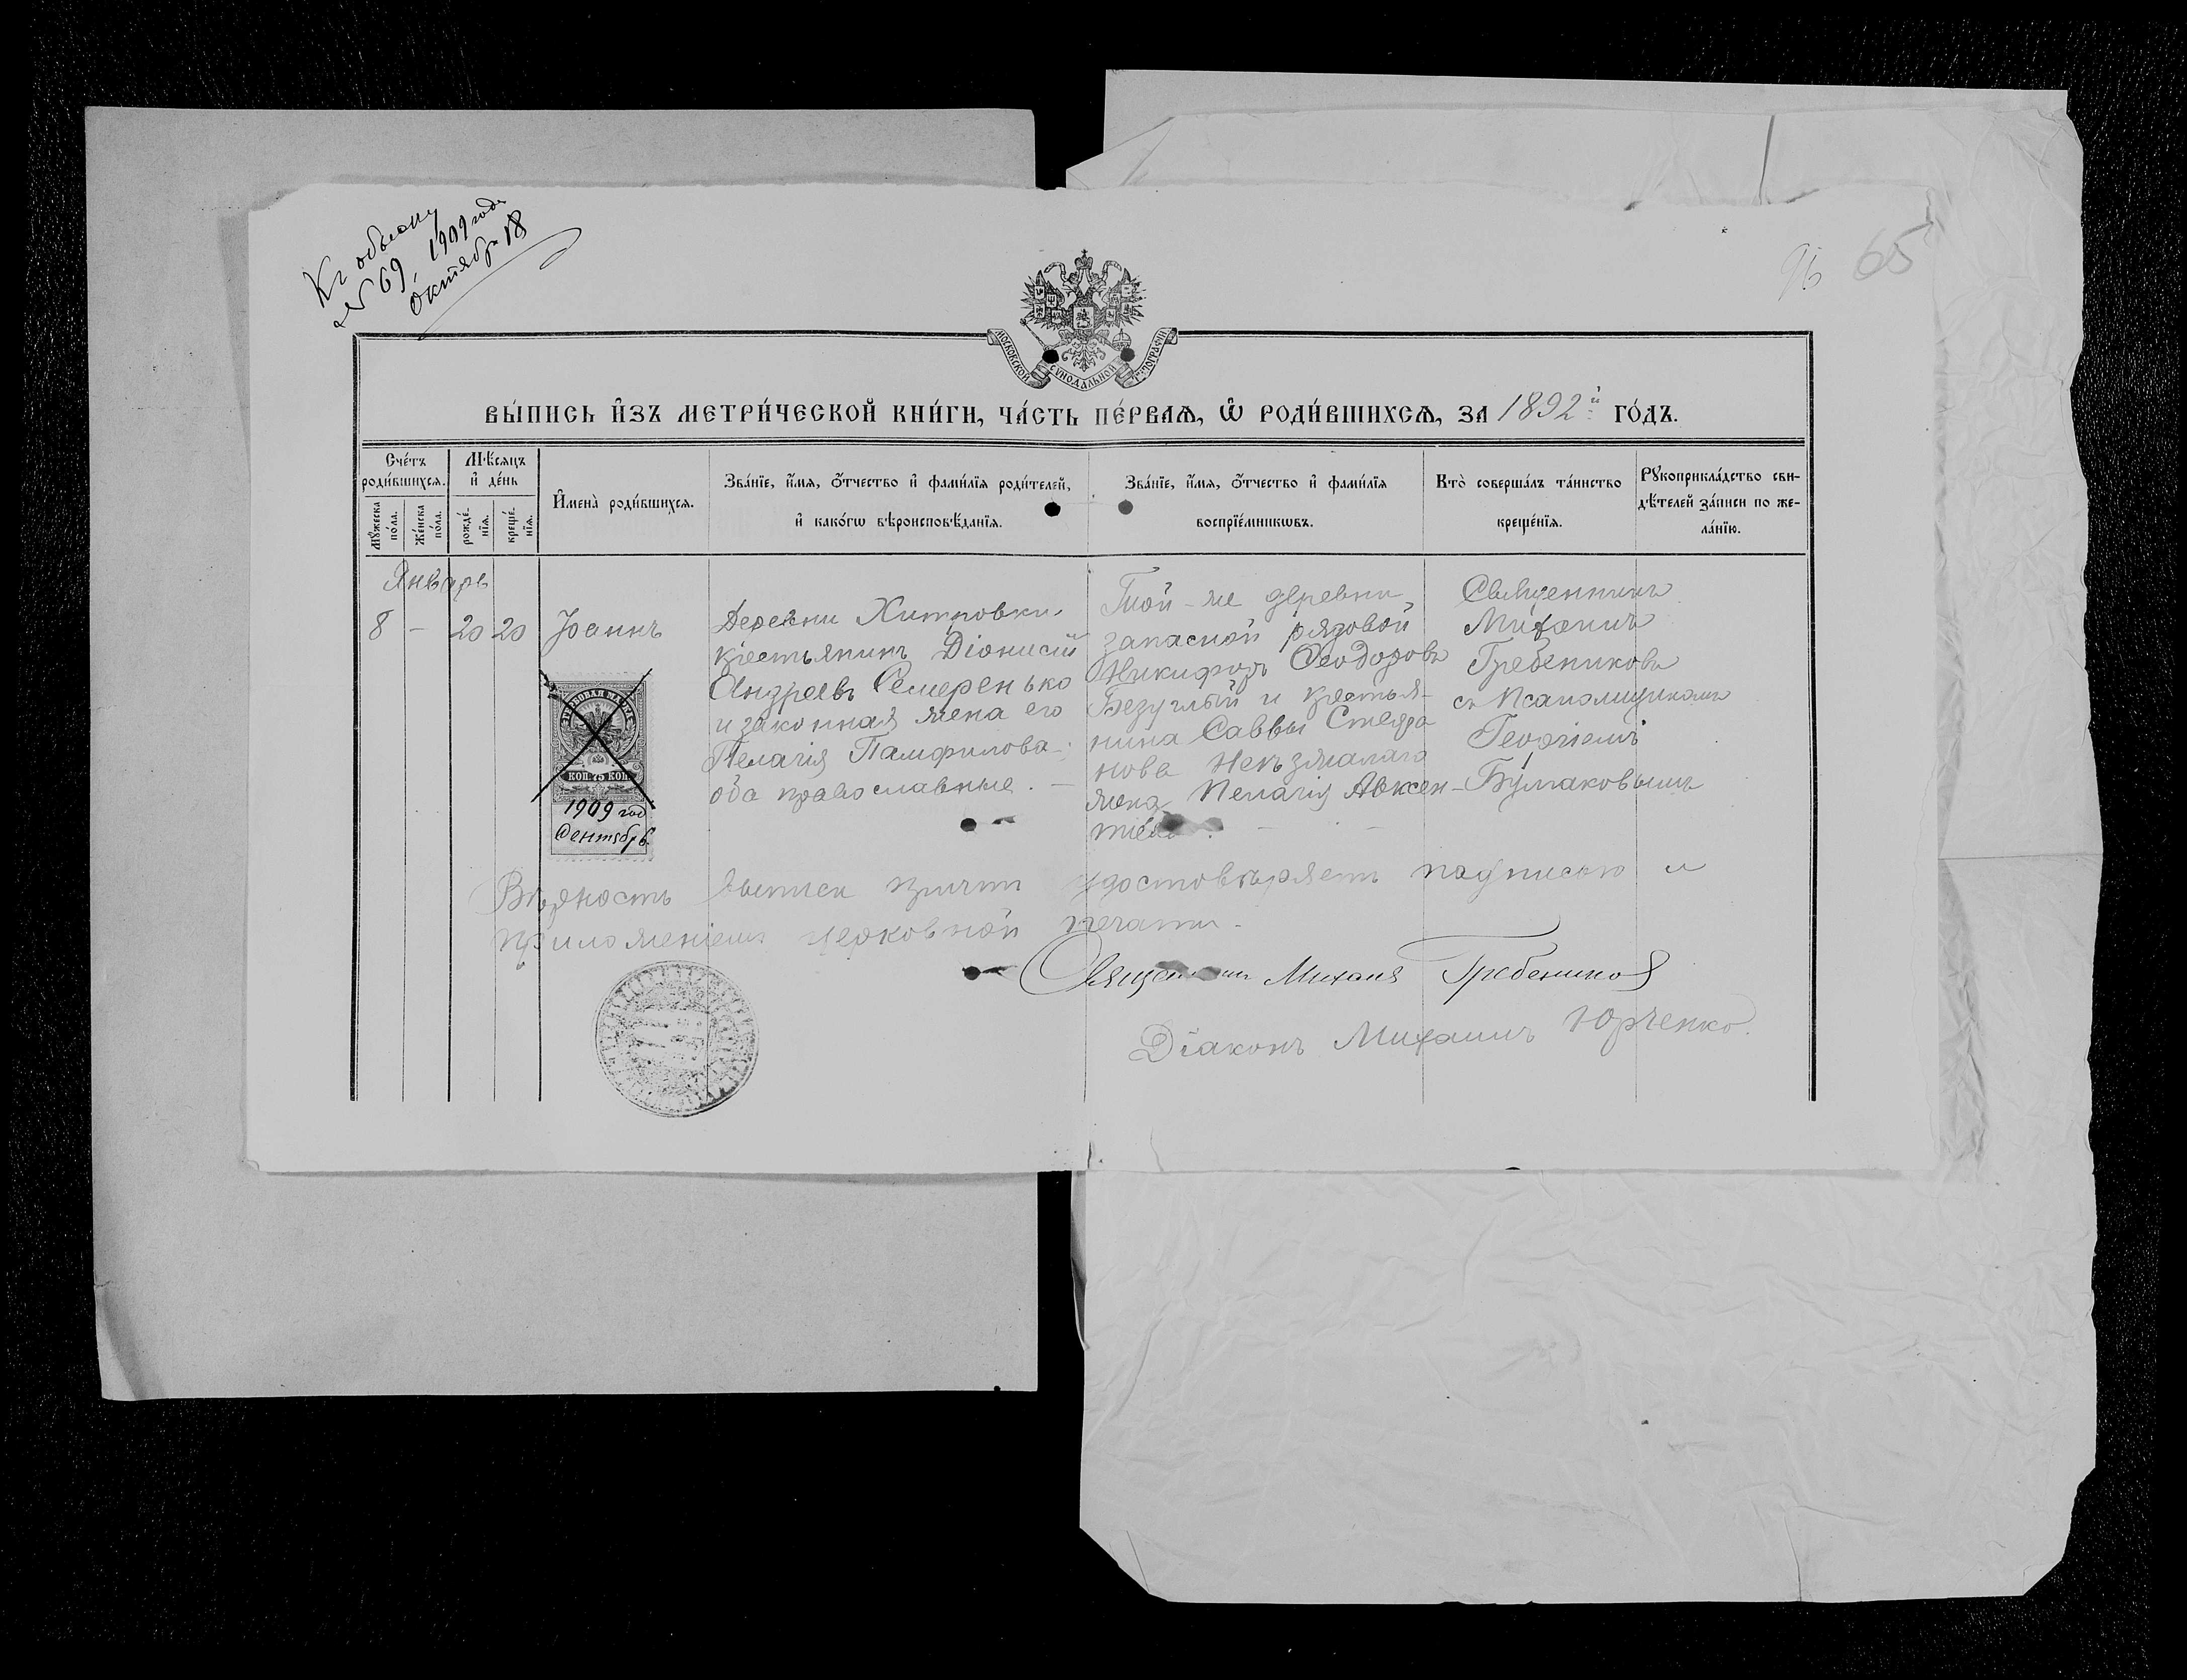 Къ обыску
№ 69, 1909 года
Октябр 18
96 65
МОСКОВСКОЙ СѴНОДАЛЬНОЙ ТИПОГРАФІИ
ВЫ́ПИСЬ И҆ЗЪ МЕТРИ́ЧЕСКОЙ КНИ́ГИ, ЧА́СТЬ ПЕ́РВАѦ, Ѡ҆ РОДИ́ВШИХСѦ, ЗА 1892й ГО́ДЪ.
Сче́тъ роди́вшихсѧ.
Мꙋ́жеска по́ла.
Же́нска по́ла.
Мѣ́сѧцъ и҆ де́нь
рожде́нїѧ.
креще́нїѧ.
И҆мена̀ роди́вшихсѧ.
Зва́нїе, и҆́мѧ, ѻ҆́тчество и҆ фами́лїѧ роди́телей,
и҆ како́гѡ вѣроисповѣ́данїѧ.
Зва́нїе, и҆́мѧ, ѻ҆́тчество и҆ фами́лїѧ
воспрїе́мникѡвъ.
Кто̀ соверша́лъ та́инство
креще́нїѧ.
Рꙋкоприкла́дство сви-
дѣ́телей за́писи по же-
ла́нїю.
Январь
8 — 20 20 Іоаннъ
Деревни Хитровки
крестьянинъ Діонисій
Андреевъ Семеренько
и законная жена его
Пелагія Памфилова
оба православные. —
Той-же деревни
запасной рядовой
Никифоръ Ѳеодоровъ
Безуглый и крестья-
нина Саввы Стефа
нова
жена Пелагія Авксен-
тіева. —
Священникъ
Михаилъ
Гребениковъ
съ псаломщикомъ
Георгіемъ
Булаковымъ
ГЕРБОВАЯ МАРКА
КОП. 75 КОП.
1909 год
Сентябр 6.
Вѣрность выписи причтъ удостовѣряетъ подписью и
приложеніемъ церковной печати.
Священникъ Михаилъ Гребениковъ
Діаконъ Михаилъ Юрченко.